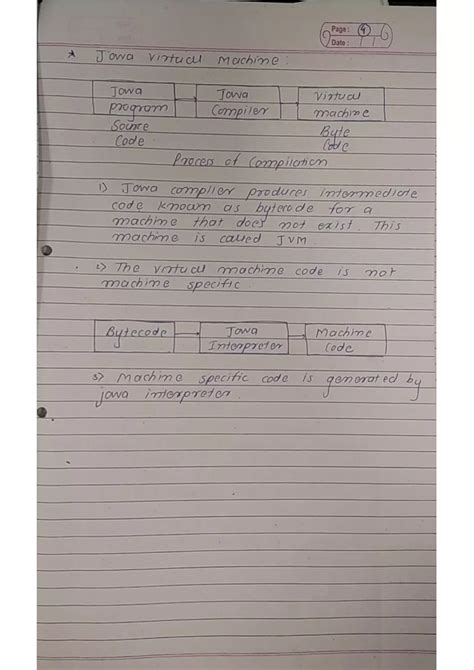 Page: 4
Date:
* Java Virtual Machine:
Java program → Java Compiler → Virtual machine
Source Code Byte Code
Process of Compilation
1) Java compiler produces intermediate
code known as bytecode for a
machine that does not exist. This
machine is called JVM.
2) The virtual machine code is not
machine specific.
Bytecode → Java Interpreter → Machine Code
3) Machine specific code is generated by
java interpreter.